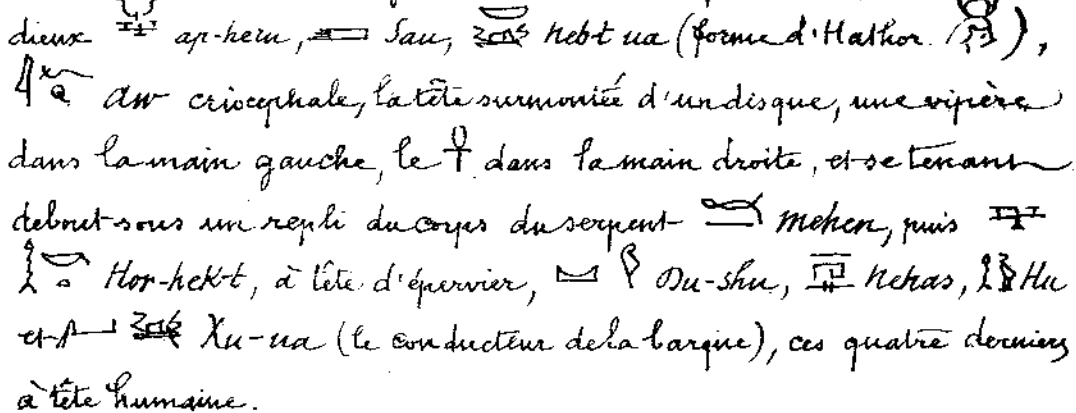 dieux ap-heru, Sau, nebt ua (forme d'Hathor ),
aw criocephale, la tête surmontée d'un disque, une vipère
dans la main gauche, le ☥ dans la main droite, et se tenant
debout sous un repli du corps du serpent mehen, puis
Hor-hek-t, à tête d'épervier, Du-shu, Nehas, Hu
et Xu-ua (le conducteur de la barque), ces quatre derniers
à tête humaine.